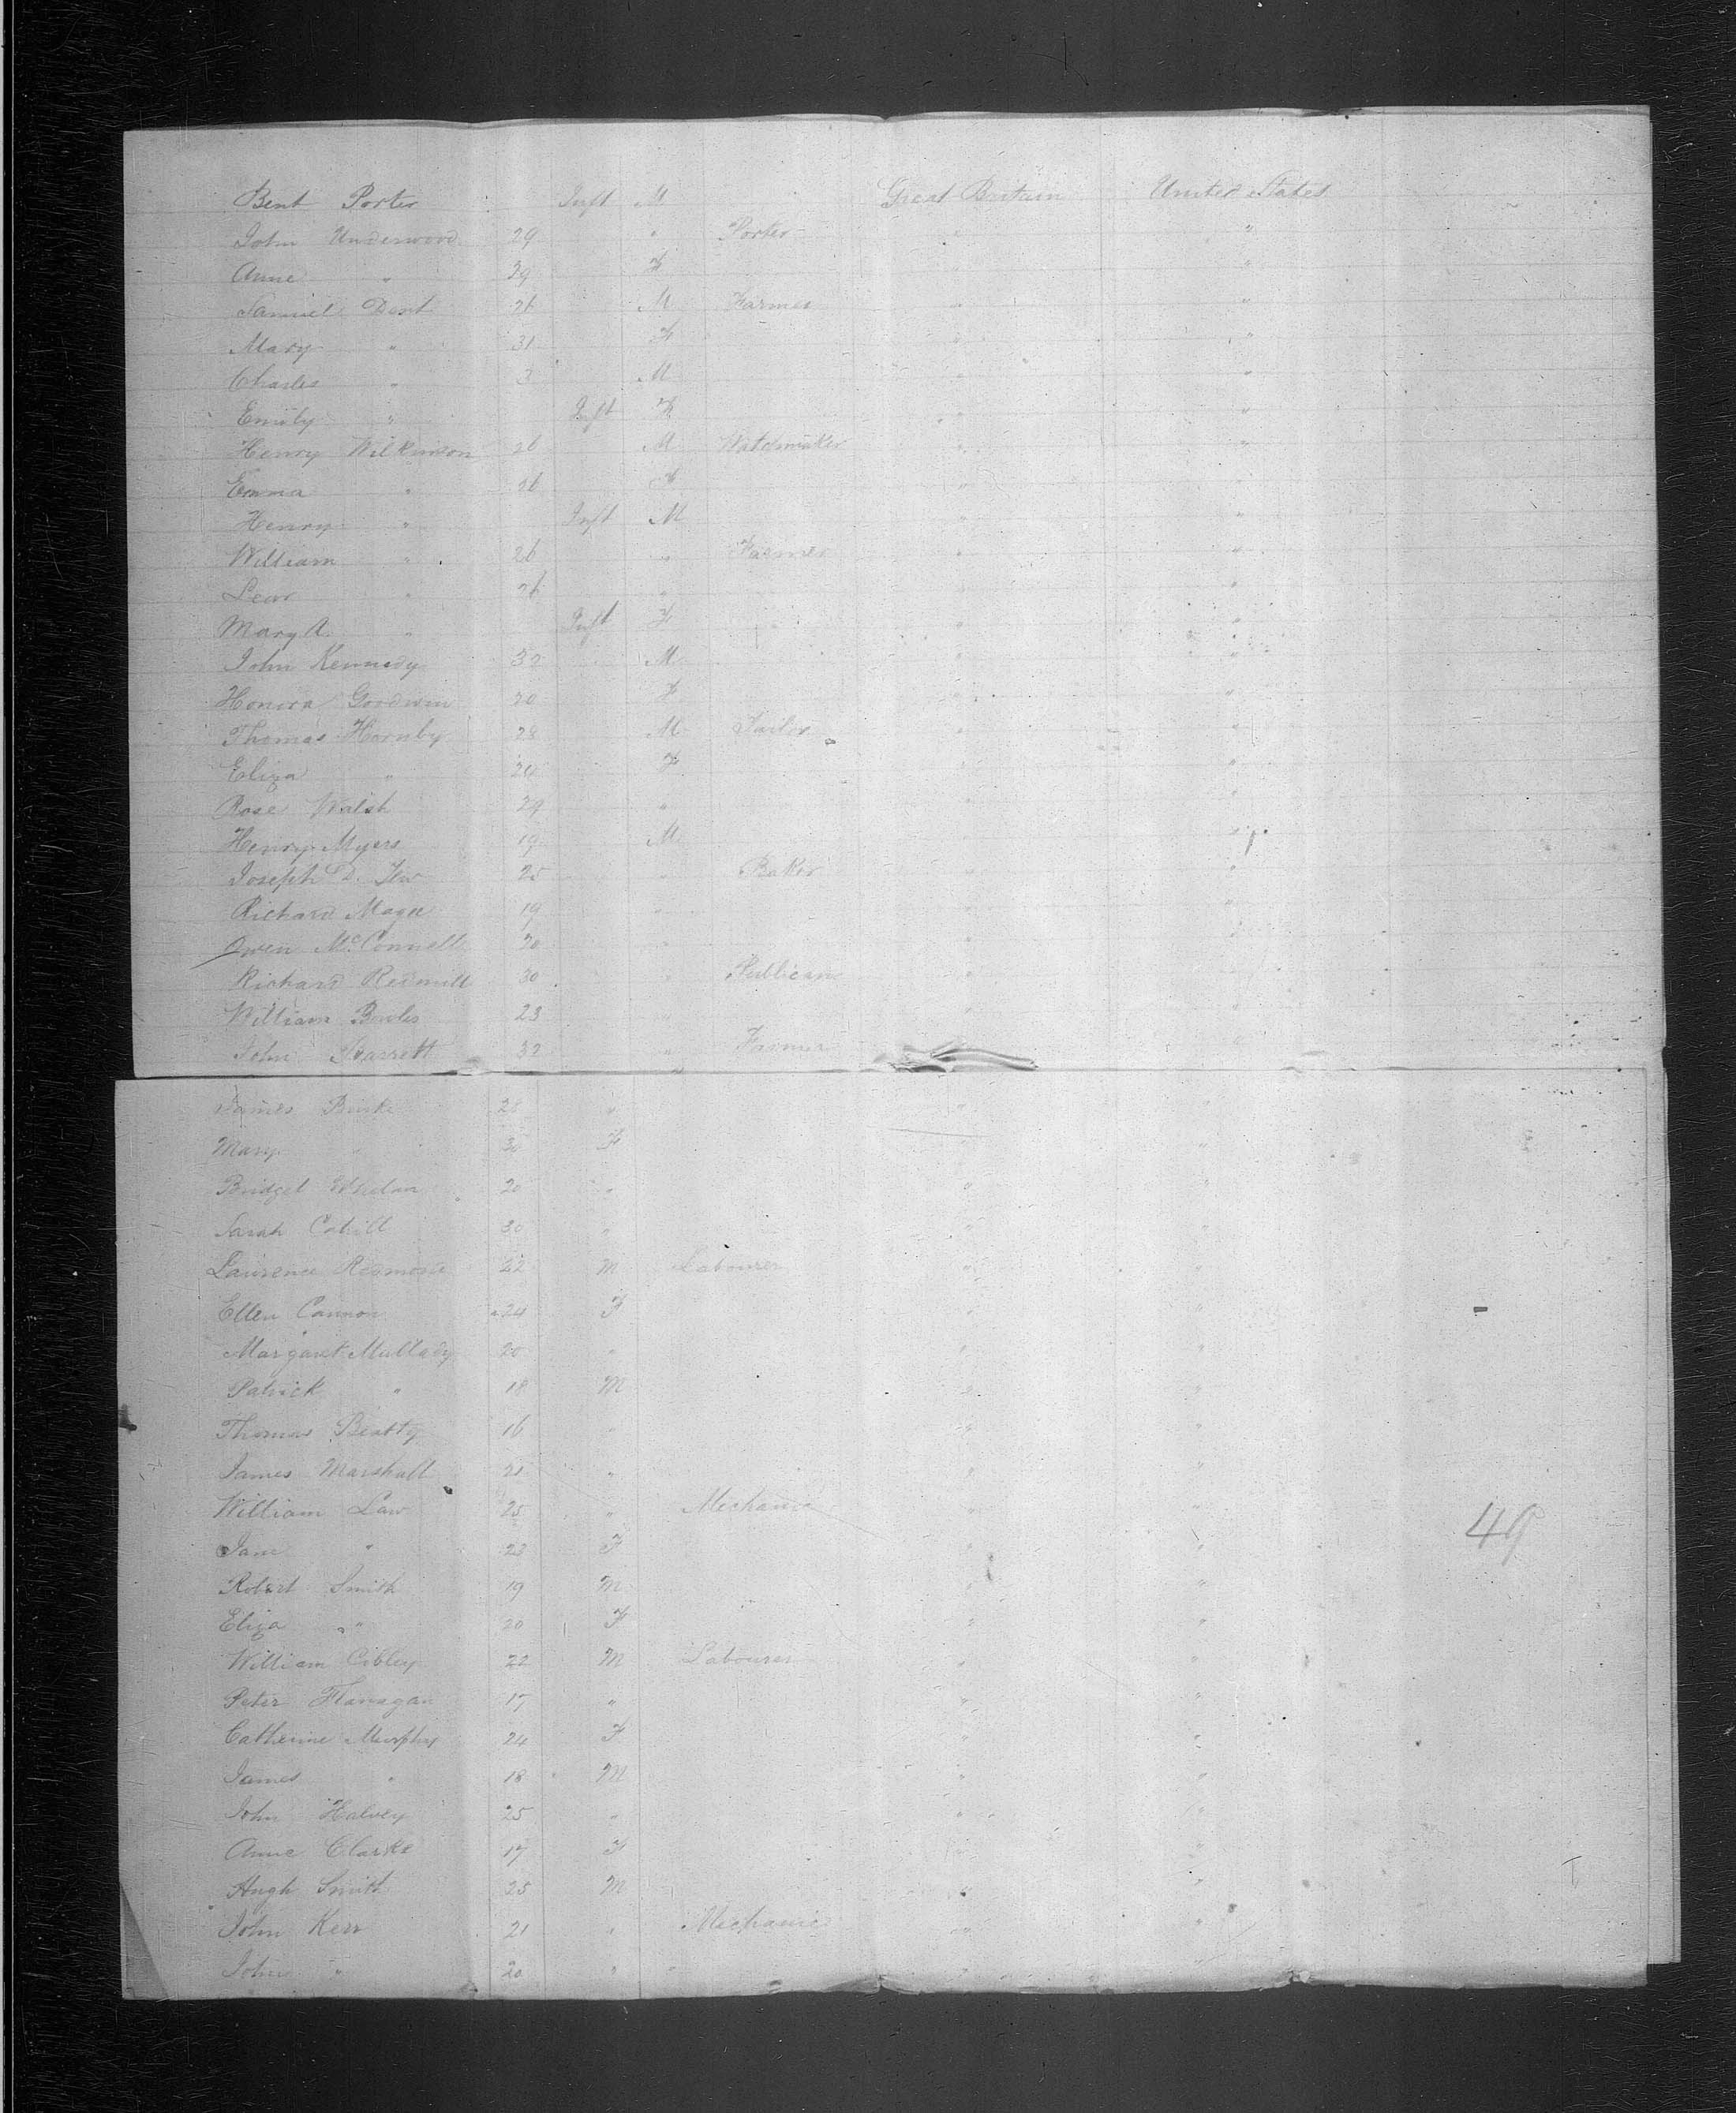 Bent Porter Inft M Great Britain United States
John Underwood 29 " Porter " "
Anne " 29 F " "
Samuel Dent 26 M Farmer " "
Mary " 31 F " "
Charles " 3 M " "
Emily " Inft F " "
Henry Wilkinson 26 M Watchmaker " "
Emma " 26 F " "
Henry " Inft M " "
William " 26 " Farmer " "
Lear " 26 " " "
Mary A. " Inft F " "
John Kennedy 32 M " "
Honora Goodwin 20 F " "
Thomas Hornby 28 M Tailor " "
Eliza " 24 F " "
Rose Walsh 24 " " "
Henry Myers 19 M " "
Joseph D. 25 " Baker " "
Richard Magee 19 " " "
Owen McConnell 20 " " "
Richard Redmill 30 " Publican " "
William 23 " " "
John Starrett 32 " Farmer " "
James Burke 28 " " "
Mary " 30 F " "
Bridget Whelan 20 " " "
Sarah Cahill 30 " " "
Laurence Redmond 22 M Labourer " "
Ellen Cannon 24 F " "
Margaret Mullady 20 " " "
Patrick " 18 M " "
Thomas Beatty 16 " " "
James Marshall 21 " " "
William Law 25 " Mechanic " "
Jane " 23 F " "
49
Robert Smith 19 M " "
Eliza " 20 F " "
William Cibley 22 M Labourer " "
Peter Flanagan 17 " " "
Catherine Murphy 24 F " "
James " 18 M " "
John Halvey 25 " " "
Anne Clarke 17 F " "
Hugh Smith 25 M " "
John Kerr 21 " Mechanic " "
John " 20 " " " "